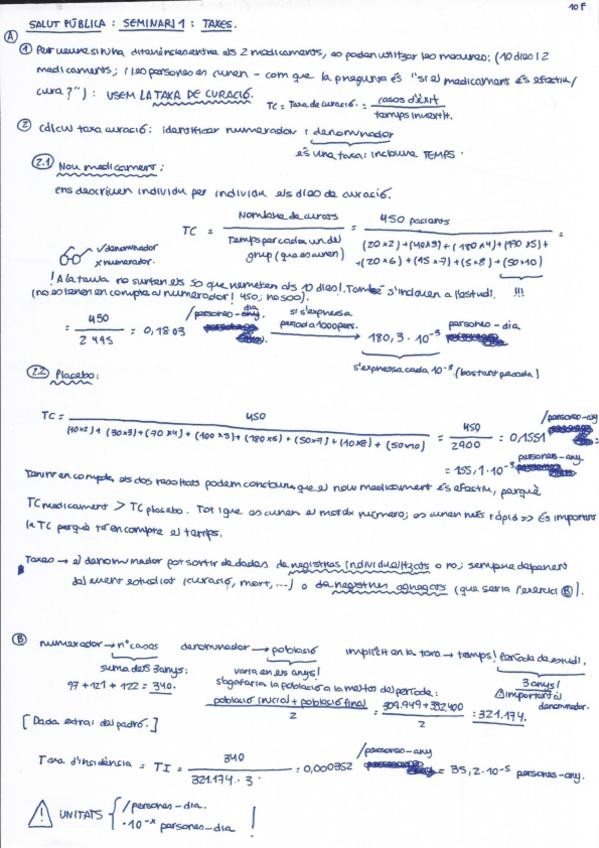 10F
SALUT PÚBLICA : SEMINARI 1 : TAXES.
A
① Per veure si hi ha diferències entre els 2 medicaments, es poden utilitzar les mesures: (10 dies i 2
medicaments; i les persones es curen - com que la pregunta és "si el medicament és efectiu/
cura?") : USEM LA TAXA DE CURACIÓ.
TC = Taxa de curació = casos d'èxit
temps invertit.
② Càlcul taxa curació: identificar numerador i denominador
és una taxa: incloure TEMPS.
2.1 Nou medicament:
ens descriuen individu per individu els dies de curació.
TC = Nombre de curats / Temps per cada un del grup (que es curen) = 450 pacients
(20×2)+(40×3)+(180×4)+(190×5)+
+(20×6)+(15×7)+(5×8)+(50×10) =
✓ denominador
x numerador.
! A la taula no surten els 50 que remeten als 10 dies!. També s'inclouen a l'estudi. !!!
(no es tenen en compte al numerador! 450; no 500).
= 450 / 2495 = 0,1803 /persones-dia si s'expressa per cada 1000 pers. → 180,3 · 10⁻³ persones-dia
s'expressa cada 10⁻³. (bastant pecada)
2.2 Placebo:
TC = 450 / (10×2)+(30×3)+(70×4)+(100×5)+(180×6)+(50×7)+(10×8)+(50×10) = 450 / 2900 = 0,1551 /persones-any =
= 155,1 · 10⁻³ persones-any.
Tenint en compte els dos resultats podem concloure que el nou medicament és efectiu, perquè
TC medicament > TC placebo. Tot i que es curen el mateix número; es curen més ràpid => És important
la TC perquè té en compte el temps.
Taxes → el denominador pot sortir de dades de registres individualitzats o no; sempre depenent
del event estudiat (curació, mort, ...) o de registres agregats (que seria l'exercici B).
B numerador → nº casos denominador → població implícit en la taxa → temps! Període de estudi.
suma dels 3 anys: varia en els anys! 3 anys!
97 + 121 + 122 = 340. s'agafaria la població a la meitat del període: ⚠ important al denominador.
població inicial + població final / 2 = 309.949 + 332400 / 2 = 321.174.
[Dada extra: del padró.]
Taxa d'incidència = TI = 340 / 321.174 · 3 = 0,000352 /persones-any = 35,2·10⁻⁵ persones-any.
⚠ UNITATS { /persones-dia.
·10⁻ˣ persones-dia !